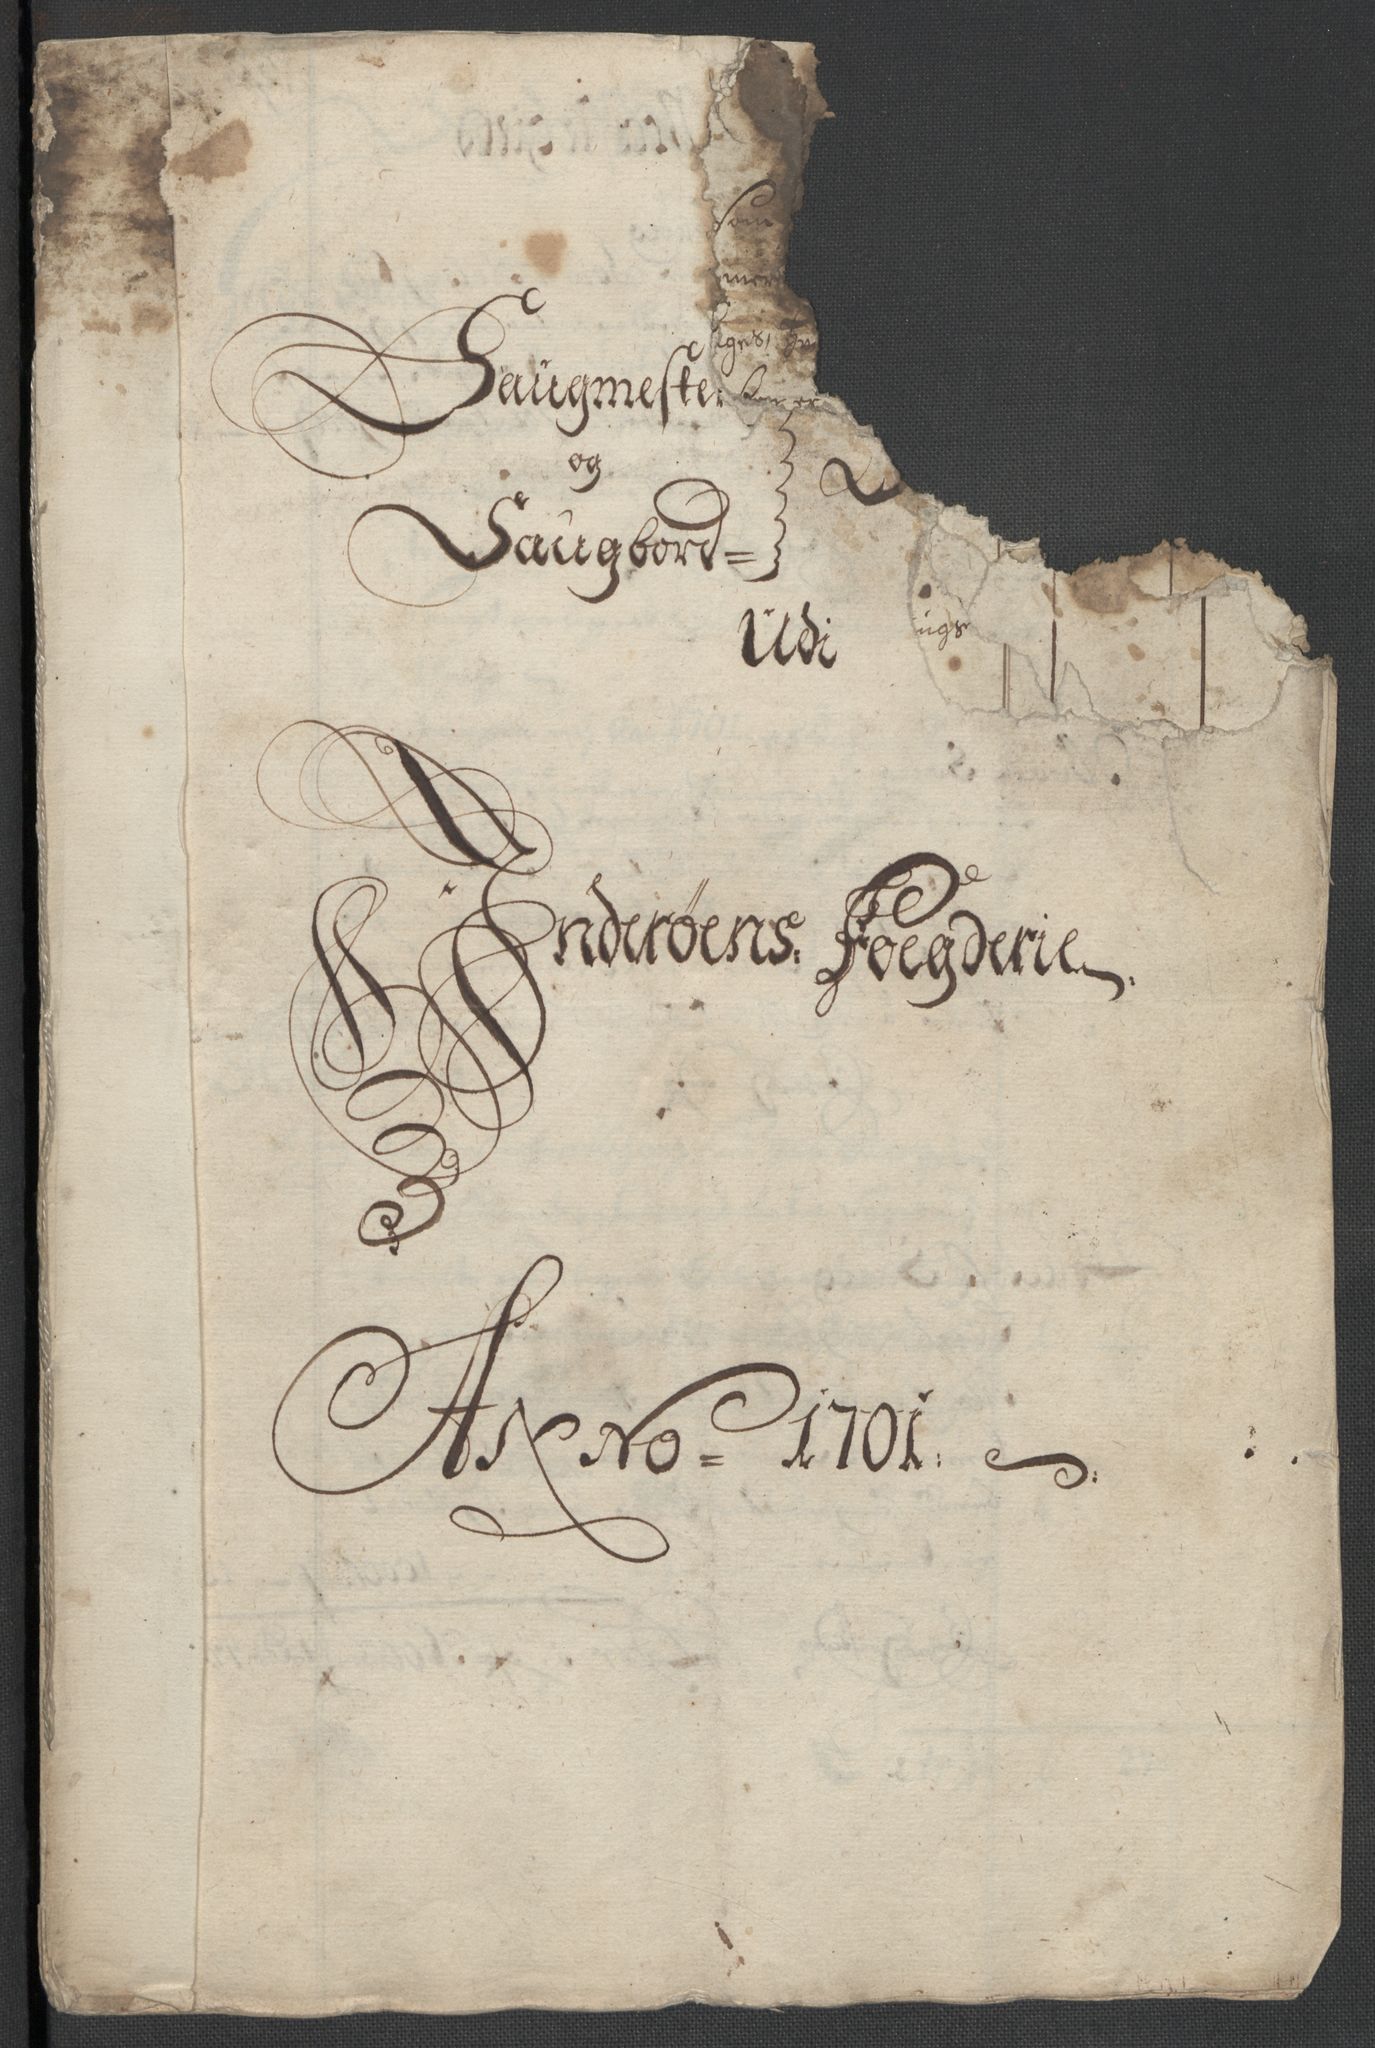 Som
mer
Saugmeste:
og
Saugbord=
Udi
ugs
Inderøens: Foegderie
Anno= 1701.